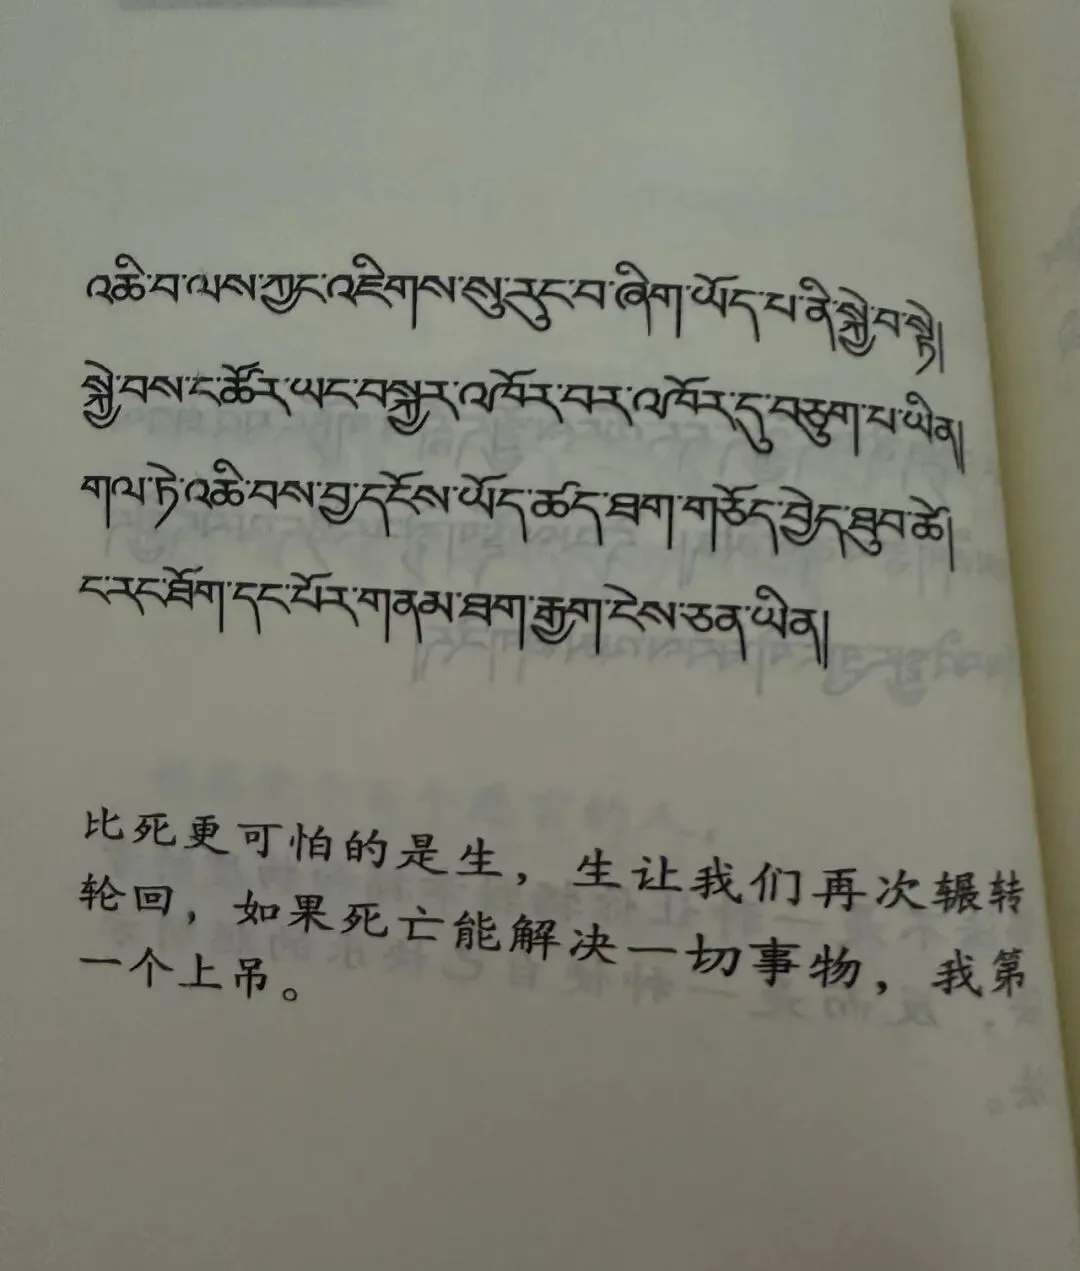 འཆི་བ་ལས་ཀྱང་འཇིགས་སུ་རུང་བ་ཞིག་ཡོད་པ་ནི་སྐྱེ་བ་སྟེ།
སྐྱེ་བས་ང་ཚོར་ཡང་བསྐྱར་འཁོར་བར་འཁོར་དུ་བཅུག་པ་ཡིན།
གལ་ཏེ་འཆི་བས་བྱ་དངོས་ཡོད་ཚད་ཐག་གཅོད་བྱེད་ཐུབ་ཚེ།
ང་རང་ཐོག་དང་པོར་གནམ་ཐག་རྒྱག་ངེས་ཅན་ཡིན།
比死更可怕的是生，生让我们再次辗转
轮回，如果死亡能解决一切事物，我第
一个上吊。